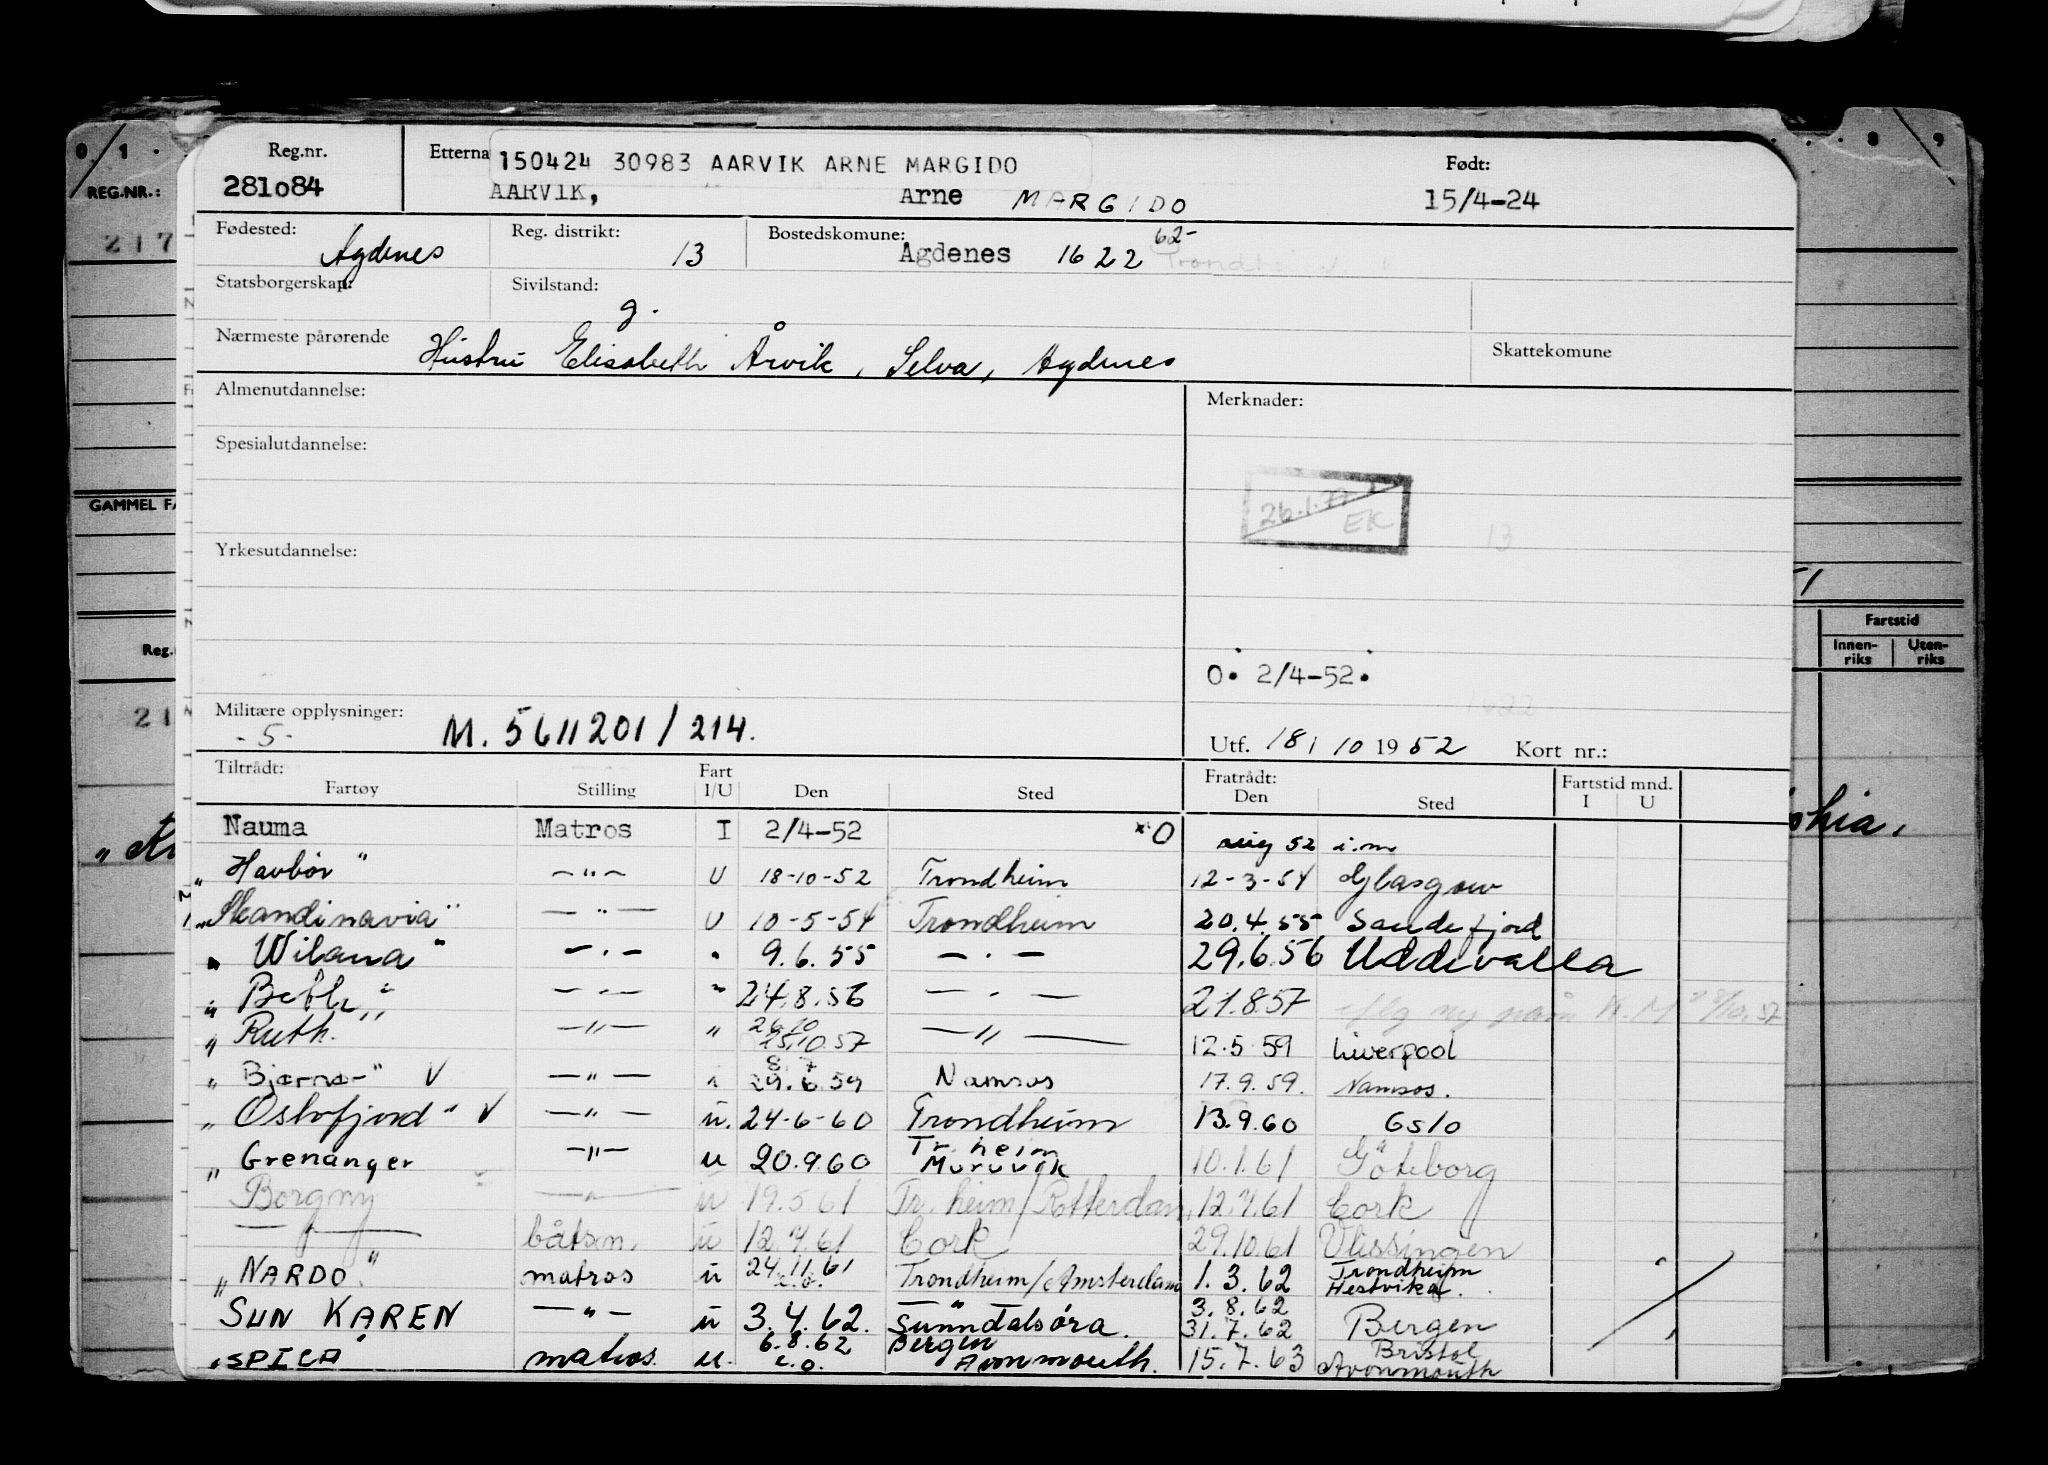 Reg.nr. Etterna 150424 30983 AARVIK ARNE MARGIDO Født:
281084 AARVIK, Arne MARGIDO 15/4-24
Fødested: Agdenes Reg. distrikt: 13 Bostedskomune: Agdenes 1622 62-
Statsborgerskap: Sivilstand: g.
Nærmeste pårørende Hustru Elisabeth Årvik, Selva, Agdenes Skattekomune
Almenutdannelse: Merknader:
Spesialutdannelse:
26.1.77
EK
13
Yrkesutdannelse:
O. 2/4-52.
1622
Militære opplysninger: M. 5611201/214.
-5-
Utf. 18/10 1952 Kort nr.:
Tiltrådt: Fratrådt: Fartstid mnd.
Fartøy Stilling Fart I/U Den Sted Den Sted I U
Nauma Matros I 2/4-52 *O aug 52 i.m
"Havbör" -"- U 18-10-52 Trondheim 12-3-54 Glasgow
"Skandinavia" -"- U 10-5-54 Trondheim 20.4.55 Sandefjord
"Wilana" -"- " 9.6.55 -"- 29.6.56 Uddevalla
"Beth" -"- " 24.8.56 -"- 21.8.57
"Ruth. -"- " 26.10 15.10.57 -"- 12.5.59 Liverpool
"Bjørnø-" V -"- " 8.7 29.6.59 Namsos 17.9.59. Namsos.
"Oslofjord" V -"- u. 24-6-60 Trondheim 13.9.60 Oslo
"Grenanger -"- u 20.9.60 Tr.heim Muruvik 10.1.61 Göteborg
Borgny -"- u 19.5.61 Tr.heim/Rotterdam 12.7.61 Cork
-"- båtsm. u 12.7.61 Cork 29.10.61 Vlissingen
"NARDO" matros u 24.11.61 e.o. Trondheim/Amsterdam 1.3.62 Trondheim Hestvika.
SUN KAREN -"- u 3.4.62. Sunndalsöra. 3.8.62 31.7.62 Bergen
"SPICA matros. u. 6.8.62 e.o. Bergen Avonmouth. 15.7.63 Bristol Avonmouth
REG.NR.:
217
GAMMEL FA
Reg.
21
0 1 . . . 8 9
51
Fartstid
Innen-riks Uten-riks